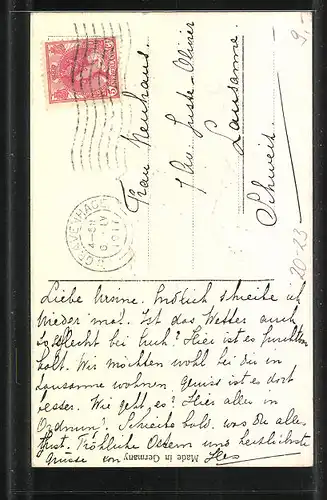 Frau Neuhaus
7 Av. Juste-Olivier
Lausanne
Schweiz
9,-
20-23
's GRAVENHAGE
4-5N
1911
NEDERLAND
5
Made in Germany
Liebe Endlich schreibe ich
wieder mal. Ist das Wetter auch
so schlecht bei Euch? Hier ist es furchtbar
kalt. Wir möchten wohl bei dir in
Lausanne wohnen, gewiss ist es dort
besser. Wie geht es? Hier alles in
Ordnung. Schreibe bald, was du alles
thust. Fröhliche Ostern und herzlichste
Grüsse von